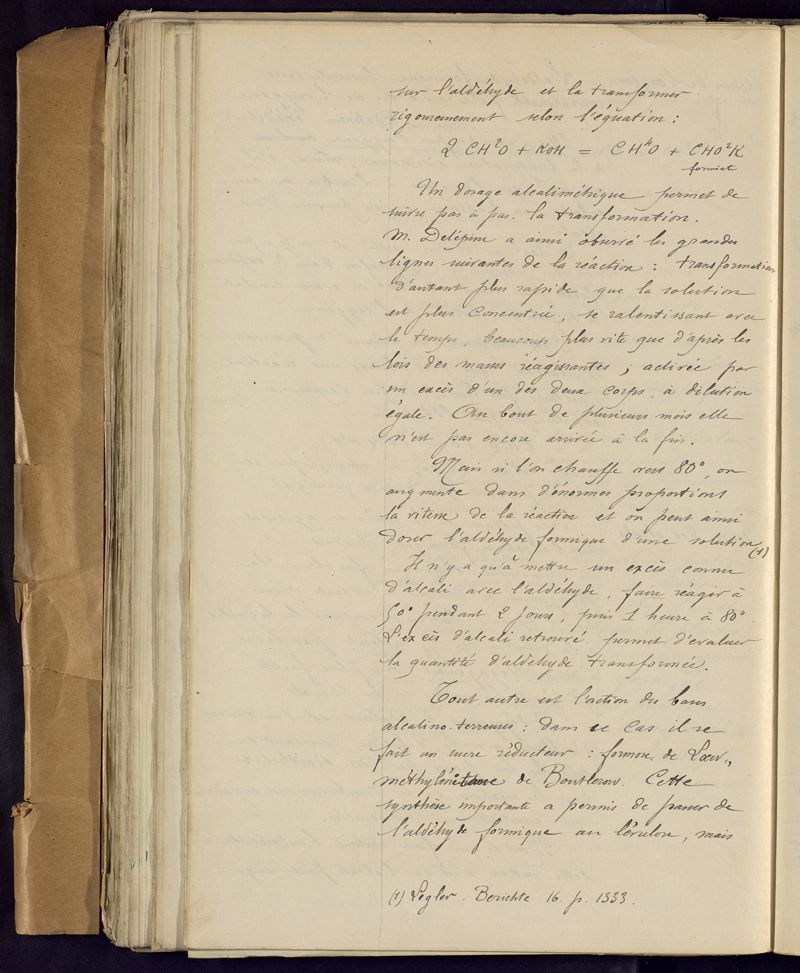 sur l'aldéhyde et la transformer
rigoureusement selon l'équation :
2 CH²O + KOH = CH⁴O + CHO²K
formiate
Un dosage alcalimétrique permet de
suivre pas à pas la transformation.
M. Delépine a ainsi observé les grandes
lignes suivantes de la réaction : transformation
d'autant plus rapide que la solution
est plus concentrée, se ralentissant avec
le temps, beaucoup plus vite que d'après les
lois des masses réagissantes ; activée par
un excès d'un des deux corps, à dilution
égale. Au bout de plusieurs mois elle
n'est pas encore arrivée à la fin.
Mais si l'on chauffe vers 80°, on
augmente dans d'énormes proportions
la vitesse de la réaction et on peut ainsi
doser l'aldéhyde formique d'une solution (1)
Il n'y a qu'à mettre un excès connu
d'alcali avec l'aldéhyde, faire réagir à
50° pendant 2 jours, puis 1 heure à 80°.
L'excès d'alcali retrouvé permet d'évaluer
la quantité d'aldéhyde transformée.
Tout autre est l'action des bases
alcalino-terreuses : dans ce cas il se
fait un sucre réducteur : formose de Loew,
méthylénitane de Boutlerow. Cette
synthèse importante a permis de passer de
l'aldéhyde formique au lévulose, mais
(1) Legler. Berichte 16. p. 1333.